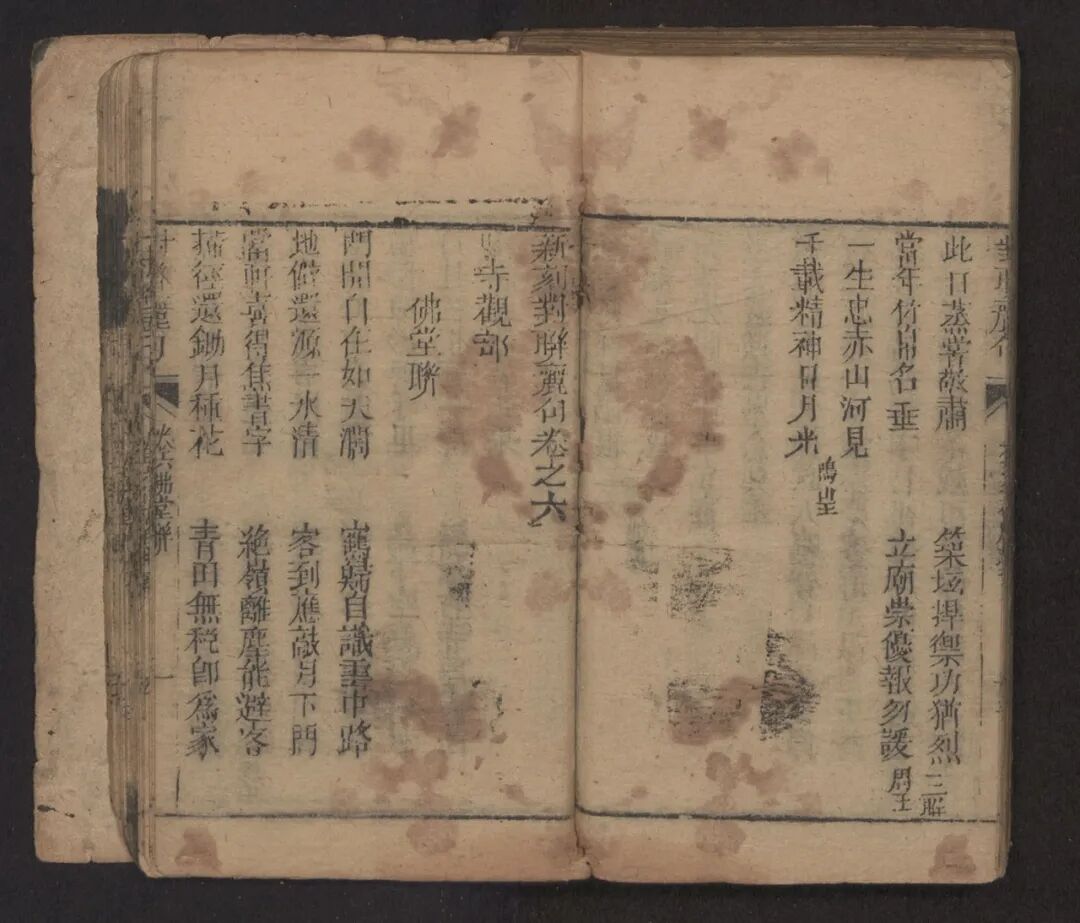 此日蒸嘗敬肅 築城捍禦功猶烈 三解
當年竹帛名垂 立廟崇優報勿諼 周王
一生忠赤山河見
千載精神日月光 鳴皇
新刻對聯麗句卷之六
寺觀部
佛堂聯
門開自在如天濶 寤寐自識雲中路
地僻還源一水清 客到應敲月下門
當軒喜得焦書字 絶嶺離塵能避客
掃徑還鋤月種花 青田無稅即為家
對聯麗句 卷六佛堂聯 一